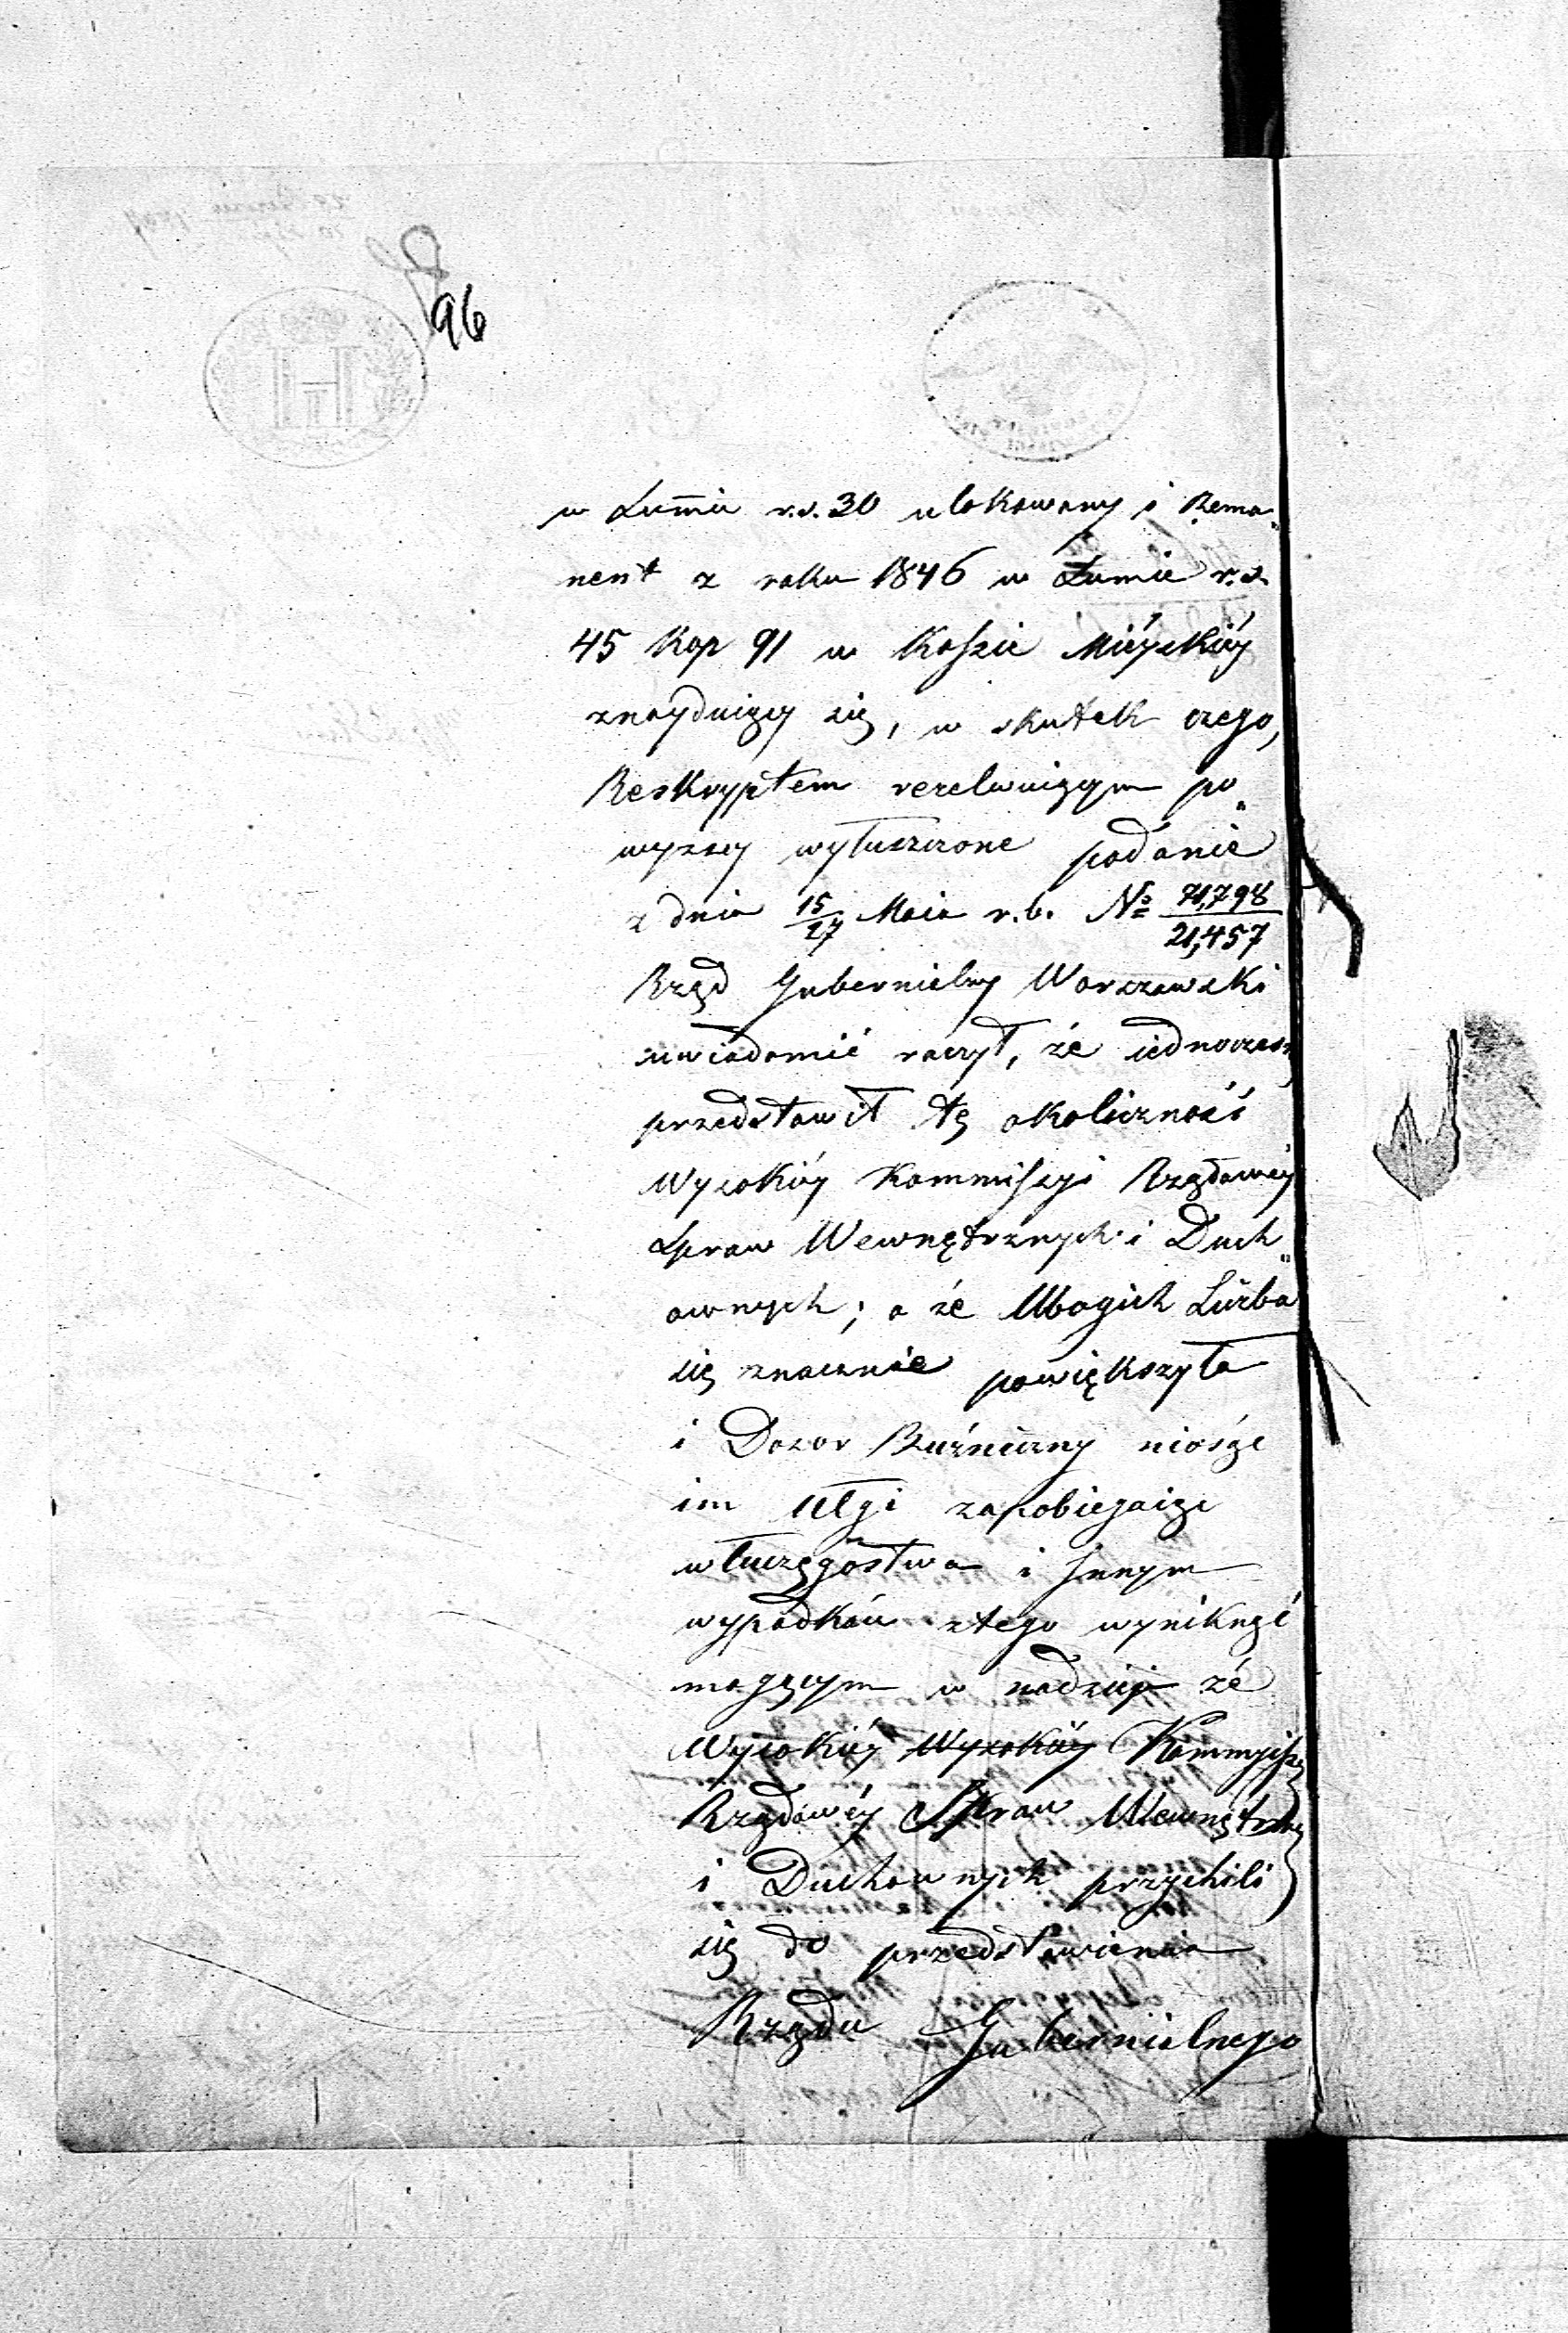 96
w Summie r.s. 30 ulokowany i Rema„
nent z roku 1846 w Sumie r.s.
45 Kop 91 w Kassie Mieyskiéy
znayduiący się, w skutek czego,
Reskryptem rezelwuiącym po„
wyzzey wyłuszczone podanie
z dnia 15/27 Maia r.b. No 71,798/21,457
Rząd Gubernielny Warszawski
uwiadomić raczył, że iednoczesn
przedstawił tę okoliczność
Wysokiéy Kommissyi Rządowéy
Spraw Wewnętrznych i Duch„
ownych; a że Ubogich Liczba
się znacznie powiększyła
i Dozor Bużniczny niosąc
im Ulgi zapobiegaiąc
włuczęgostwa i Innym
wypadkóm ztego wyniknąć
mogącym w nadzieje że
Wysokiéy Wysokiéy Kommyissy
Rządowéy Spraw Wewnętrzny
i Duchownych przychili
się do przedstawienia
Rządu Gubernielnego